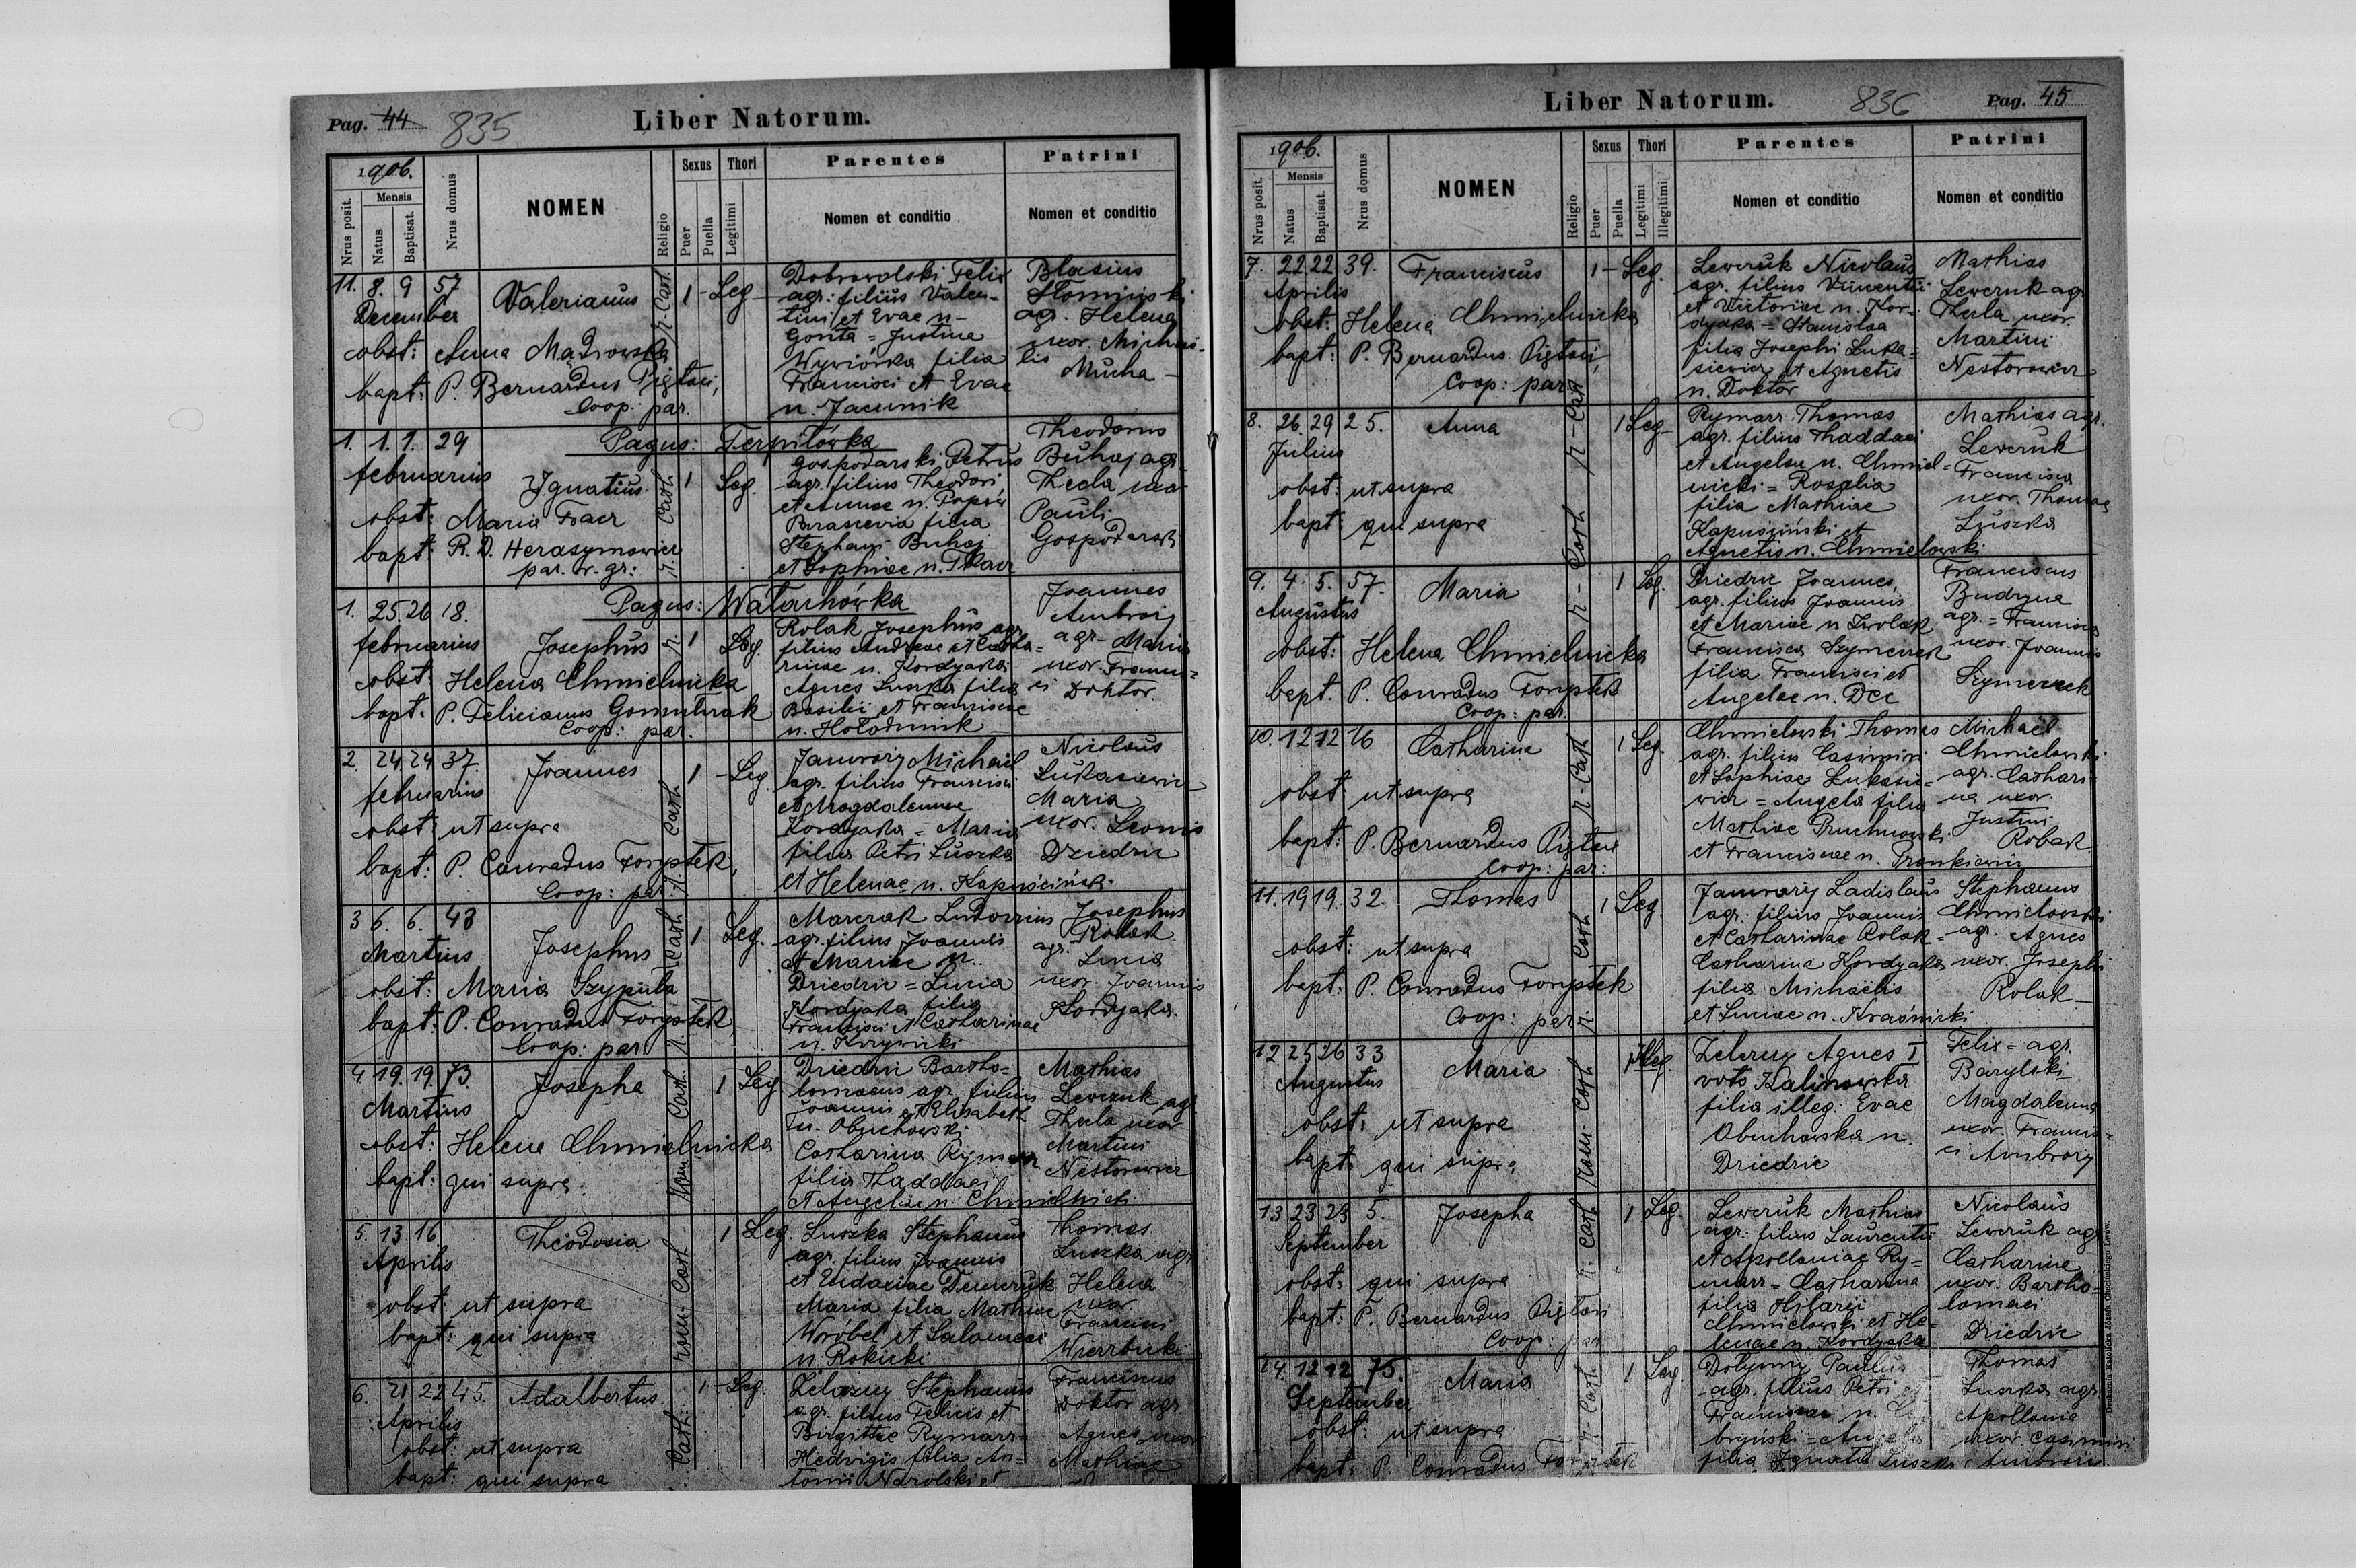 Pag. 44 835 Liber Natorum.
1906.
Nrus posit.
Mensis
Natus
Baptisat.
Nrus domus
NOMEN
Religio
Sexus
Puer
Puella
Thori
Legitimi
Parentes
Nomen et conditio
Patrini
Nomen et conditio
11. 8. 9 57 Valerianus r. Cath 1 - Leg -
December
obst: Anna
bapt: P. Bernardus
Coop: par.
Dobrowolski Felix
agr: filius Valen-
tini et Evae n-
Gonta = Justina
Wywiórka filia
Francisci et Evae
n. Jacunik
Blasius
Słomiński
agr. Helena
uxor. Michae-
lis Mucha -
1. 1. 1. 29 Pagus: Terpiłówka
februarius Ignatius r. Cath 1 Leg.
obst: Maria Tracz
bapt: R. D. Herasymowicz
par. r. gr:
Gospodarski Petrus
agr. filius Theodori
et Annae n. Popów
Parascevia filia
Stephani Buhaj
et Sophiae n. Tkacz
Theodorus
Buhaj agr
Thecla uxor
Pauli
Gospodarski
1. 25 26 18. Pagus: Wałachówka
februarius Josephus r. 1 Leg.
obst: Helena Chmielnicka
bapt: P. Felicianus
Coop: par.
Rolak Josephus agr.
filius Andreae et Catha-
rinae n. Kordyaka
Agnes Luszka filia
Basilii et Franciscae
n. Hołodniuk
Joannes
Ambroży
agr - Maria
uxor. Francis-
ci Doktor.
2. 24 24 37. Joannes r. Cath 1 - Leg.
februarius
obst: ut supra
bapt: P. Conradus Forystek,
Coop: par.
Jaworóży Michael
agr. filius Francisci
et Magdalenae
Kordyaka = Maria
filia Petri Luszka
et Helenae n. Kapuściński.
Nicolaus
Łukasiewicz
Maria
uxor. Leonis
Dziedzic
3 6. 6. 43 Josephus r. Cath 1 Leg.
Martius
obst: Maria Szypuła
bapt: P. Conradus Forystek
Coop: par
Marczak Ludovicus
agr. filius Joannis
et Mariae n.
Dziedzic = Lucia
Kordyaka filia
Francisci et Catharinae
n. Krzywicki
Josephus
Rolak
agr. Lucia
uxor. Joannis
Kordyaka.
4. 19. 19. 73. Josepha r. Cath. 1 Leg
Martius
obst: Helena Chmielnicka
bapt: qui supra
Dziedzic Bartho-
lomaeus agr filius
Joannis et Elisabeth
n. Obuchowski
Catharina Rymarz
filia Thaddaei
et Angelae n. Chmielnicki
Mathias
Lewczuk agr
Thecla uxor
Martini
Nestorowicz
5. 13. 16 Theodosia rom. Cath 1 Leg.
Aprilis
obst: ut supra
bapt: qui supra
Luszka Stephanus
agr. filius Joannis
et Eudoxiae Demczuk
Maria filia Mathiae
Wróbel et Salomeae
n. Rokicki
Thomas
Luszka agr
Helena
uxor
Francisci
Wierzbicki
6. 21 22 45. Adalbertus. Cath. 1 - Leg.
Aprilis
obst: ut supra
bapt: qui supra
Żelazny Stephanus
agr. filius Felicis et
Birgittae Rymarz =
Hedvigis filia An-
tonii Narolski et
Franciscus
Doktor agr
Agnes uxor
Mathiae
Liber Natorum. 836 Pag. 45
1906.
Nrus posit.
Mensis
Natus
Baptisat.
Nrus domus
NOMEN
Religio
Sexus
Puer
Puella
Thori
Legitimi
Illegitimi
Parentes
Nomen et conditio
Patrini
Nomen et conditio
7. 22 22 39. Franciscus 1 - Leg.
Aprilis
obst: Helena Chmielnicka
bapt: P. Bernardus
Coop: par
Lewczuk Nicolaus
agr. filius Vincentii
et Victoriae n. Kor-
dyaka = Stanislaa
filia Josephi Łuka-
siewicz et Agnetis
n. Doktor
Mathias
Lewczuk agr
Thecla uxor.
Martini
Nestorowicz
8. 26 29 25. Anna r - Cath 1 Leg -
Julius
obst: ut supra
bapt: qui supra
Rymarz Thomas
agr. filius Thaddaei
et Angelae n. Chmiel-
nicki = Rosalia
filia Mathiae
Kapuściński et
Agnetis n. Chmielowski
Mathias agr.
Lewczuk
Francisca
uxor. Thomae
Luszka
9. 4. 5. 57. Maria r - Cath 1 Leg.
Augustus
obst: Helena Chmielnicka
bapt. P. Conradus Forystek
Coop: par.
Dziedzic Joannes,
agr. filius Joannis
et Mariae n
Francisca Szymczak
filia Francisci et
Angelae n. Dec
Franciscus
Budzyna
agr. = Francisca
uxor. Joannis
Szymczak
10. 12 12 16 Catharina r - Cath 1 Leg.
obst: ut supra
bapt: P. Bernardus
Coop: par:
Chmielowski Thomas
agr. filius Casimiri
et Sophiae Łukasie-
wicz = Angela filia
Mathiae Pruchnowski
et Franciscae n.
Michaël
Chmielowski
agr. Cathari-
na uxor.
Justini
Robak
11. 19 19. 32. Thomas r. Cath 1 Leg.
obst: ut supra
bapt: P. Conradus Forystek
Coop: par
Jaworóży Ladislaus
agr: filius Joannis
et Catharinae Rolak =
Catharina Kordyaka
filia Michaëlis
et Luciae n. Kraśnicki
Stephanus
Chmielowski
agr. Agnes
uxor. Josephi
Rolak -
12 25 26 33 Maria Rom. Cath 1 Illeg.
Augustus
obst: ut supra
bapt: qui supra
Żelazny Agnes I
voto Kalinowska
filia illeg: Evae
Obuchowska n.
Dziedzic
Felix = agr.
Barylski
Magdalena
uxor. Francis-
ci Ambroży
13 23 23 5. Josepha r. Cath 1 Leg.
September
obst: qui supra
bapt: P. Bernardus
Coop: par
Lewczuk Mathias
agr: filius Laurentii
et Apolloniae Ry-
marz = Catharina
filia Hilarii
Chmielowski et He-
lenae n. Kordyaka
Nicolaus
Lewczuk agr
Catharina
uxor. Bartho-
lomaei
Dziedzic
14. 12 12 75. Maria r - Cath. 1 Leg.
September
obst: ut supra
bapt: P. Conradus Forystek
Dolynny Paulus
agr. filius Petri et
Franciscae n.
bryński = Angela
filia Ignatii Luszka
Thomas
Luszka agr
Apollonia
uxor. Casimiri
Ambroży
Drukarnia Katolicka Józefa Chęcińskiego Lwów.